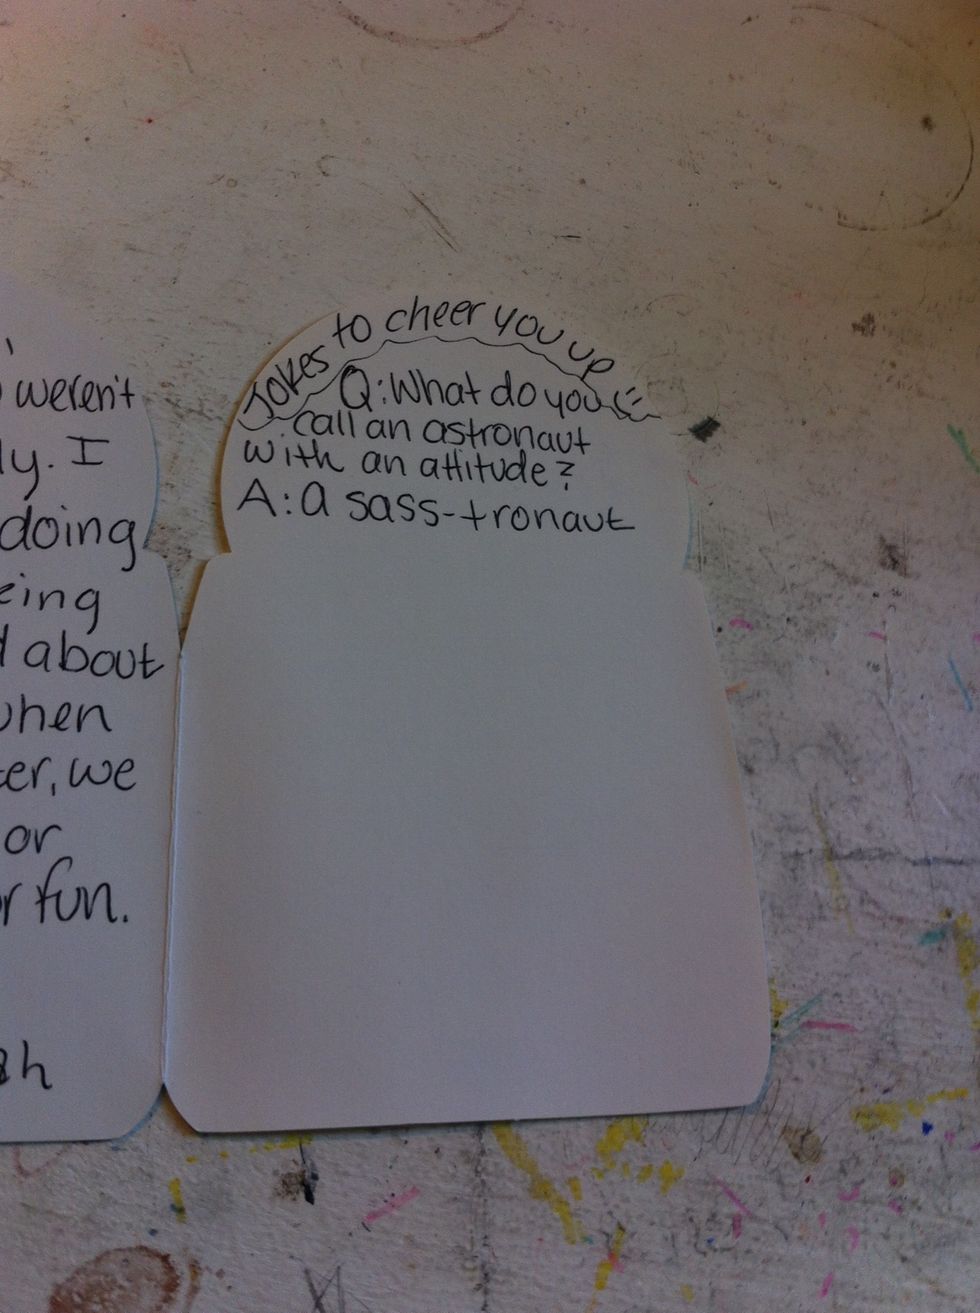 ,
weren't
ly. I
doing
eing
about
when
er, we
or
r fun.
h
Jokes to cheer you up
Q: What do you
call an astronaut
with an attitude?
A: a sass-tronaut